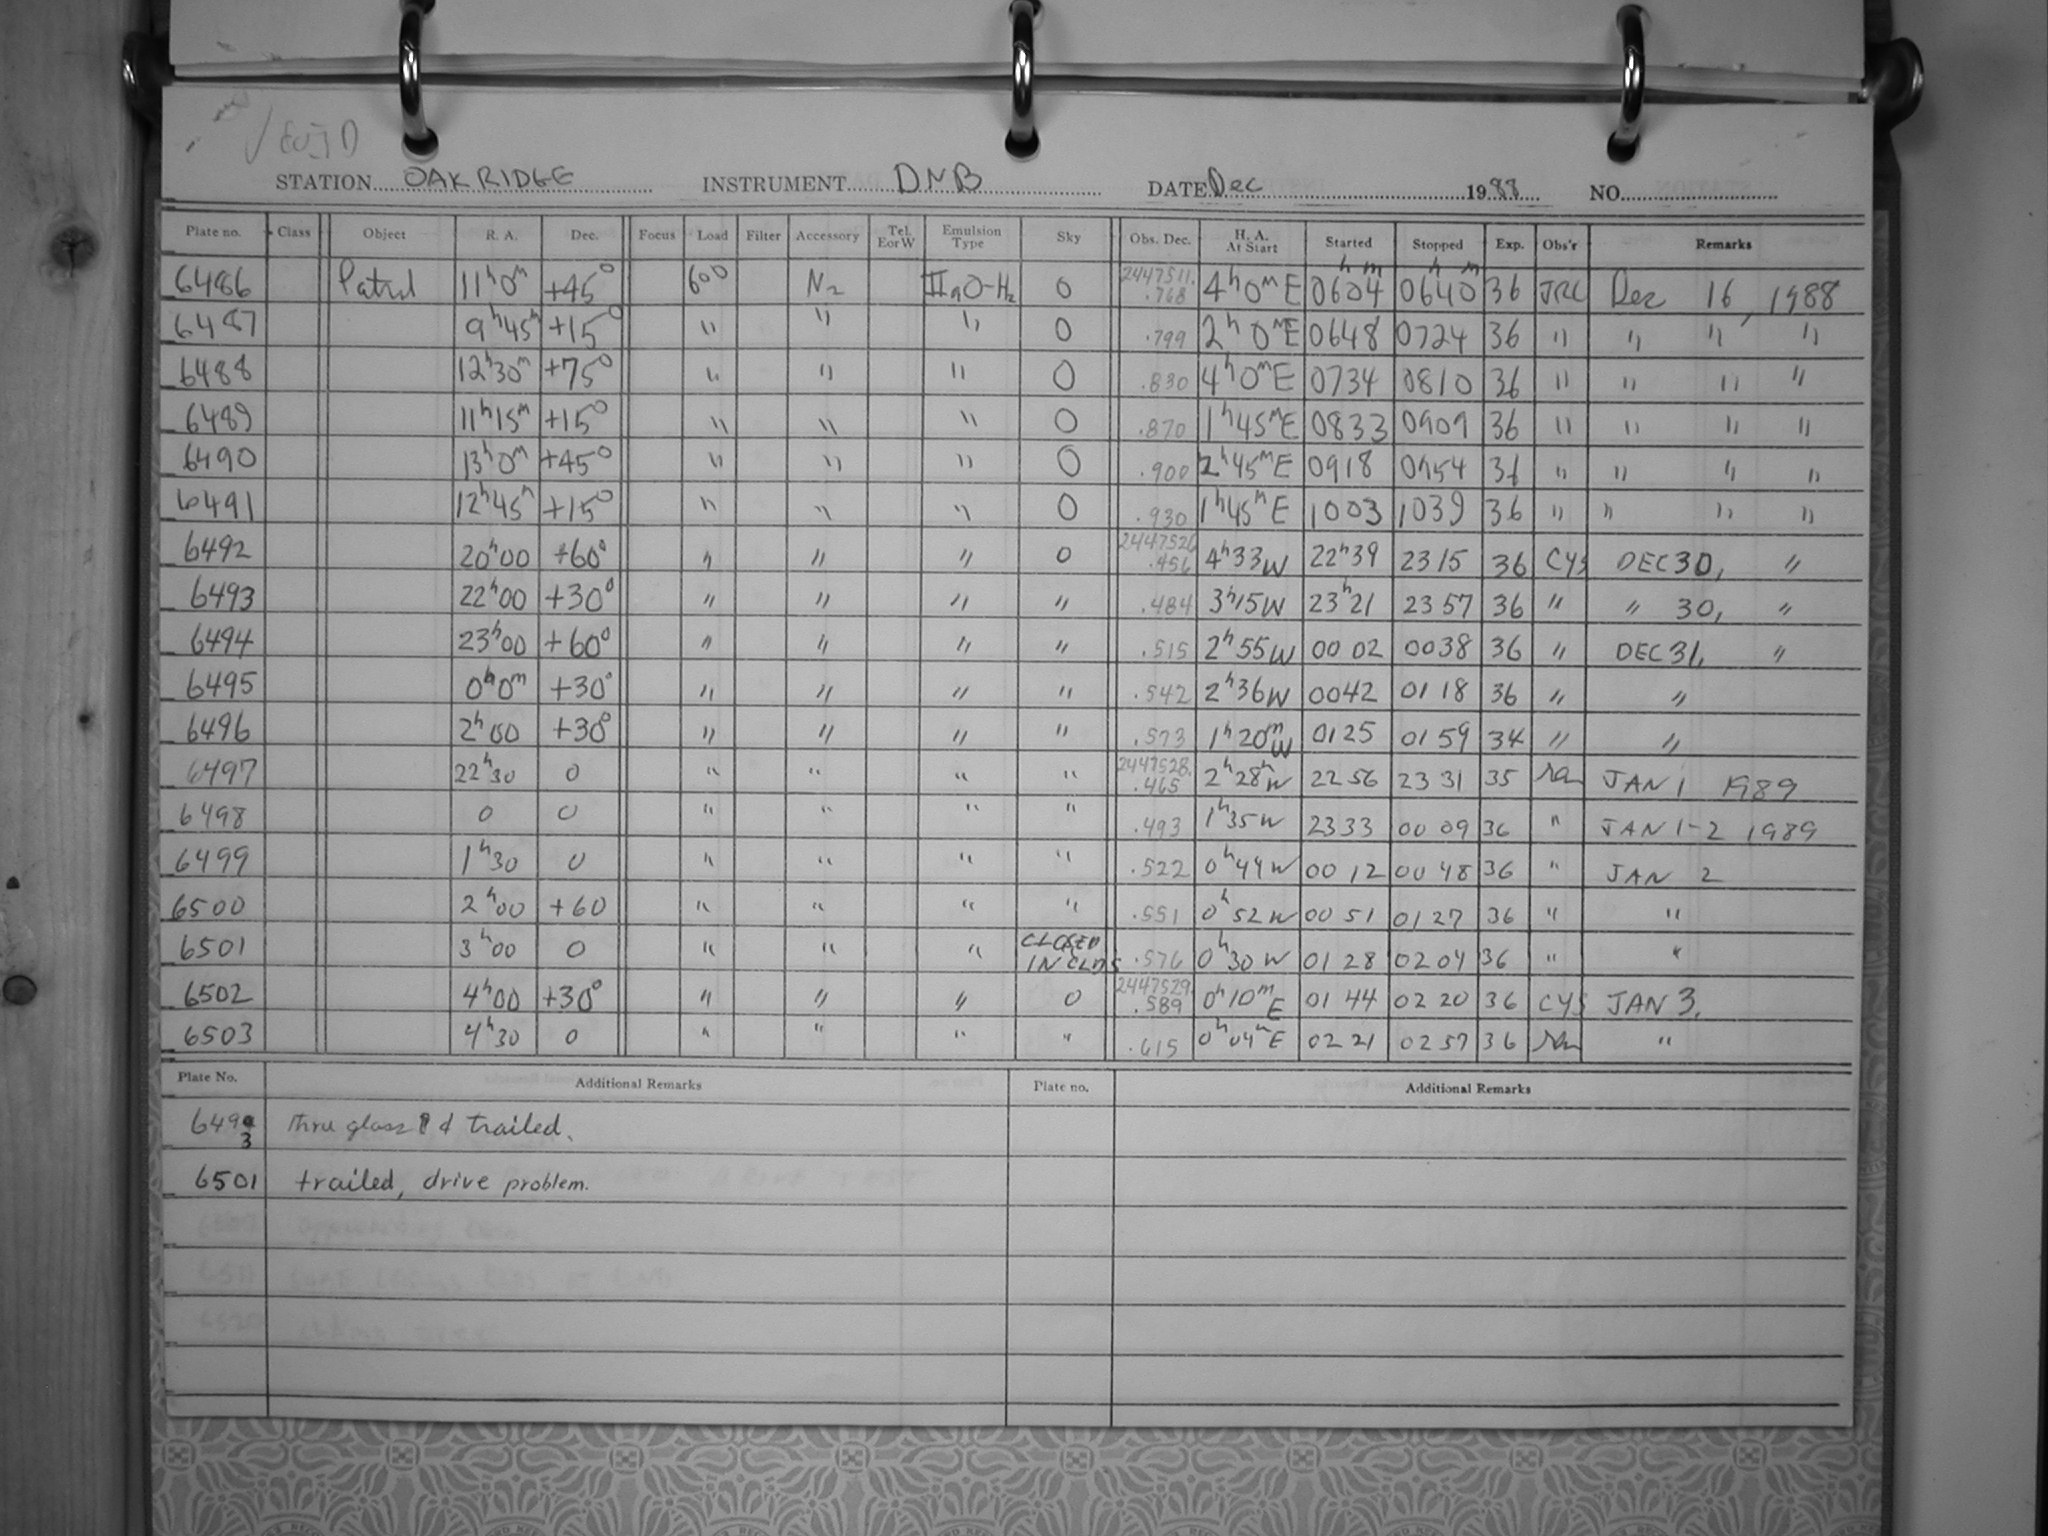 STATION OAK RIDGE INSTRUMENT DNB DATE Dec 1988 NO.
Plate no. Class Object R. A. Dec. Focus Load Filter Accessory Tel. E or W Emulsion Type Sky Obs. Dec. H. A. At Start Started Stopped Exp. Obs'r Remarks
6486 Patrol 11h0m +45° 600 N2 IIaO-H2 0 2447511.768 4h0mE 0604 0640 36 JRC Dec 16, 1988
6487 9h45m +15° " " " 0 .799 2h0mE 0648 0724 36 " " " "
6488 12h30m +75° " " " 0 .830 4h0mE 0734 0810 36 " " " "
6489 11h15m +15° " " " 0 .870 1h45mE 0833 0909 36 " " " "
6490 13h0m +45° " " " 0 .900 2h45mE 0918 0954 36 " " " "
6491 12h45m +15° " " " 0 .930 1h45mE 1003 1039 36 " " " "
6492 20h00 +60° " " " 0 2447526.456 4h33W 22h39 2315 36 CYS DEC 30, "
6493 22h00 +30° " " " " .484 3h15W 23h21 2357 36 " " 30, "
6494 23h00 +60° " " " " .515 2h55W 0002 0038 36 " DEC 31, "
6495 0h0m +30° " " " " .542 2h36W 0042 0118 36 " "
6496 2h00 +30° " " " " .573 1h20mW 0125 0159 34 " "
6497 22h30 0 " " " " 2447528.465 2h28mW 2256 2331 35 JAN 1 1989
6498 0 0 " " " " .493 1h35W 2333 0009 36 " JAN 1-2 1989
6499 1h30 0 " " " " .522 0h44W 0012 0048 36 " JAN 2
6500 2h00 +60 " " " " .551 0h52W 0051 0127 36 " "
6501 3h00 0 " " " CLOSED IN CLDS .576 0h30W 0128 0204 36 " "
6502 4h00 +30° " " " 0 2447529.589 0h10mE 0144 0220 36 CYS JAN 3.
6503 4h30 0 " " " " .615 0h04mE 0221 0257 36 "
Plate No. Additional Remarks Plate no. Additional Remarks
6493 thru glass & trailed.
6501 trailed, drive problem.